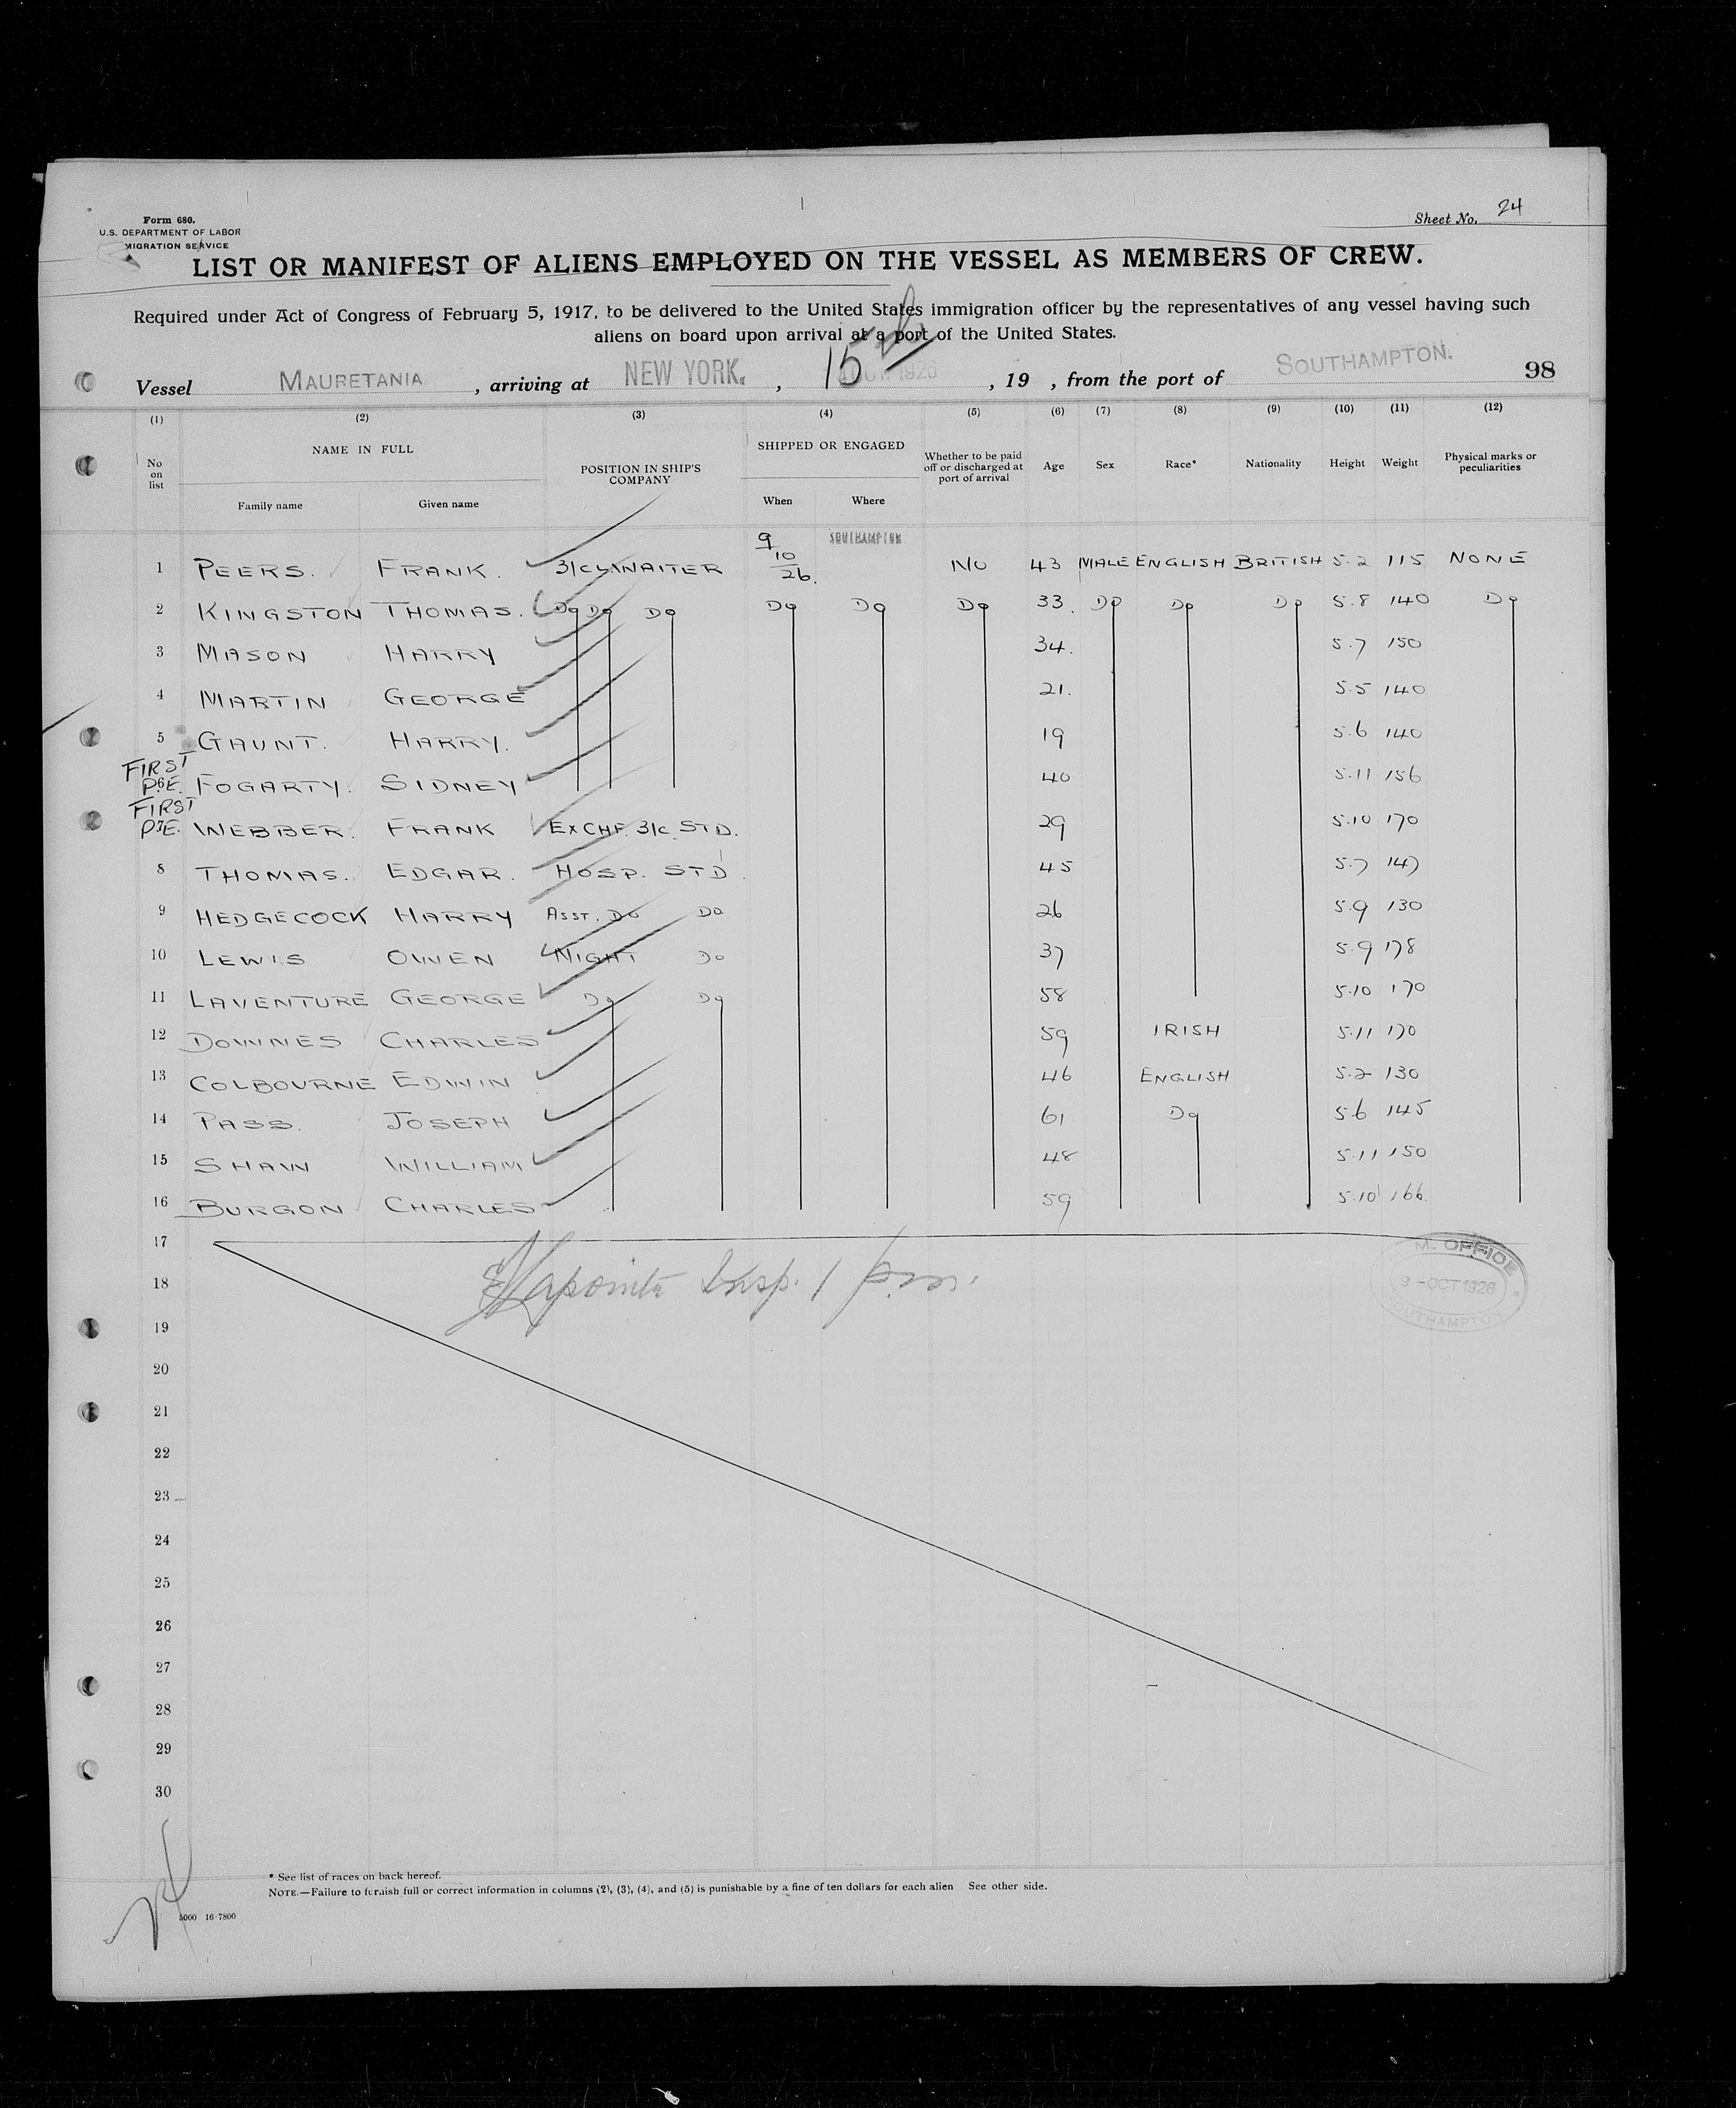 Form 680.
U.S. DEPARTMENT OF LABOR
MIGRATION SERVICE
Sheet No. 24
LIST OR MANIFEST OF ALIENS EMPLOYED ON THE VESSEL AS MEMBERS OF CREW.
Required under Act of Congress of February 5, 1917, to be delivered to the United States immigration officer by the representatives of any vessel having such
aliens on board upon arrival at a port of the United States.
Vessel MAURETANIA, arriving at NEW YORK., 15th OCT 1926, 19 , from the port of SOUTHAMPTON. 98
(1) (2) (3) (4) (5) (6) (7) (8) (9) (10) (11) (12)
No on list NAME IN FULL Family name Given name POSITION IN SHIP'S COMPANY SHIPPED OR ENGAGED When Where Whether to be paid off or discharged at port of arrival Age Sex Race* Nationality Height Weight Physical marks or peculiarities
1 PEERS. FRANK. 3/CL.WAITER 9/10/26. SOUTHAMPTON NO 43 MALE ENGLISH BRITISH 5.2 115 NONE
2 KINGSTON THOMAS. Do Do Do Do Do Do 33. Do Do Do 5.8 140 Do
3 MASON HARRY 34. 5.7 150
4 MARTIN GEORGE 21. 5.5 140
5 GAUNT. HARRY. 19 5.6 140
FIRST P6E. FOGARTY. SIDNEY 40 5.11 156
FIRST P7E. WEBBER. FRANK EX CHF. 3/C. STD. 29 5.10 170
8 THOMAS. EDGAR. HOSP. STD. 45 5.7 147
9 HEDGECOCK HARRY ASST. DO DO 26 5.9 130
10 LEWIS OWEN NIGHT DO 37 5.9 178
11 LAVENTURE GEORGE Do Do 58 5.10 170
12 DOWNES CHARLES 59 IRISH 5.11 170
13 COLBOURNE EDWIN 46 ENGLISH 5.2 130
14 PASS. JOSEPH 61 Do 5.6 145
15 SHAW WILLIAM 48 5.11 150
16 BURGON CHARLES 59 5.10 166.
17
18 Insp.
M. OFFICE
9 - OCT 1926
SOUTHAMPTON
19
20
21
22
23
24
25
26
27
28
29
30
* See list of races on back hereof.
NOTE.—Failure to furnish full or correct information in columns (2), (3), (4), and (5) is punishable by a fine of ten dollars for each alien See other side.
5000 16-7800